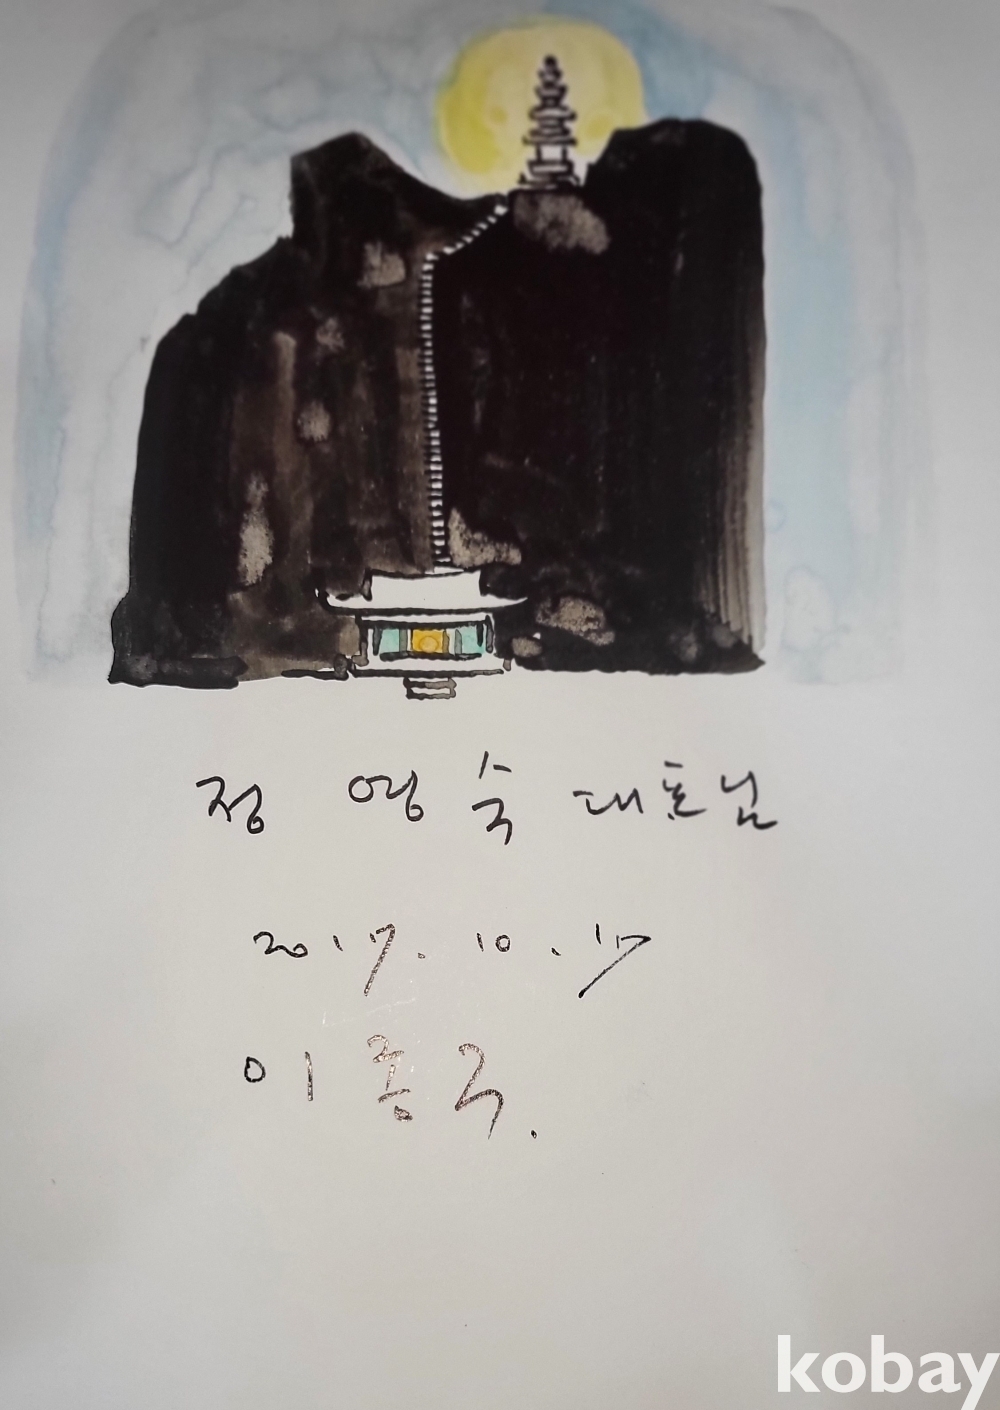 정 영숙 대표님
2017. 10. 17
이종구.
kobay